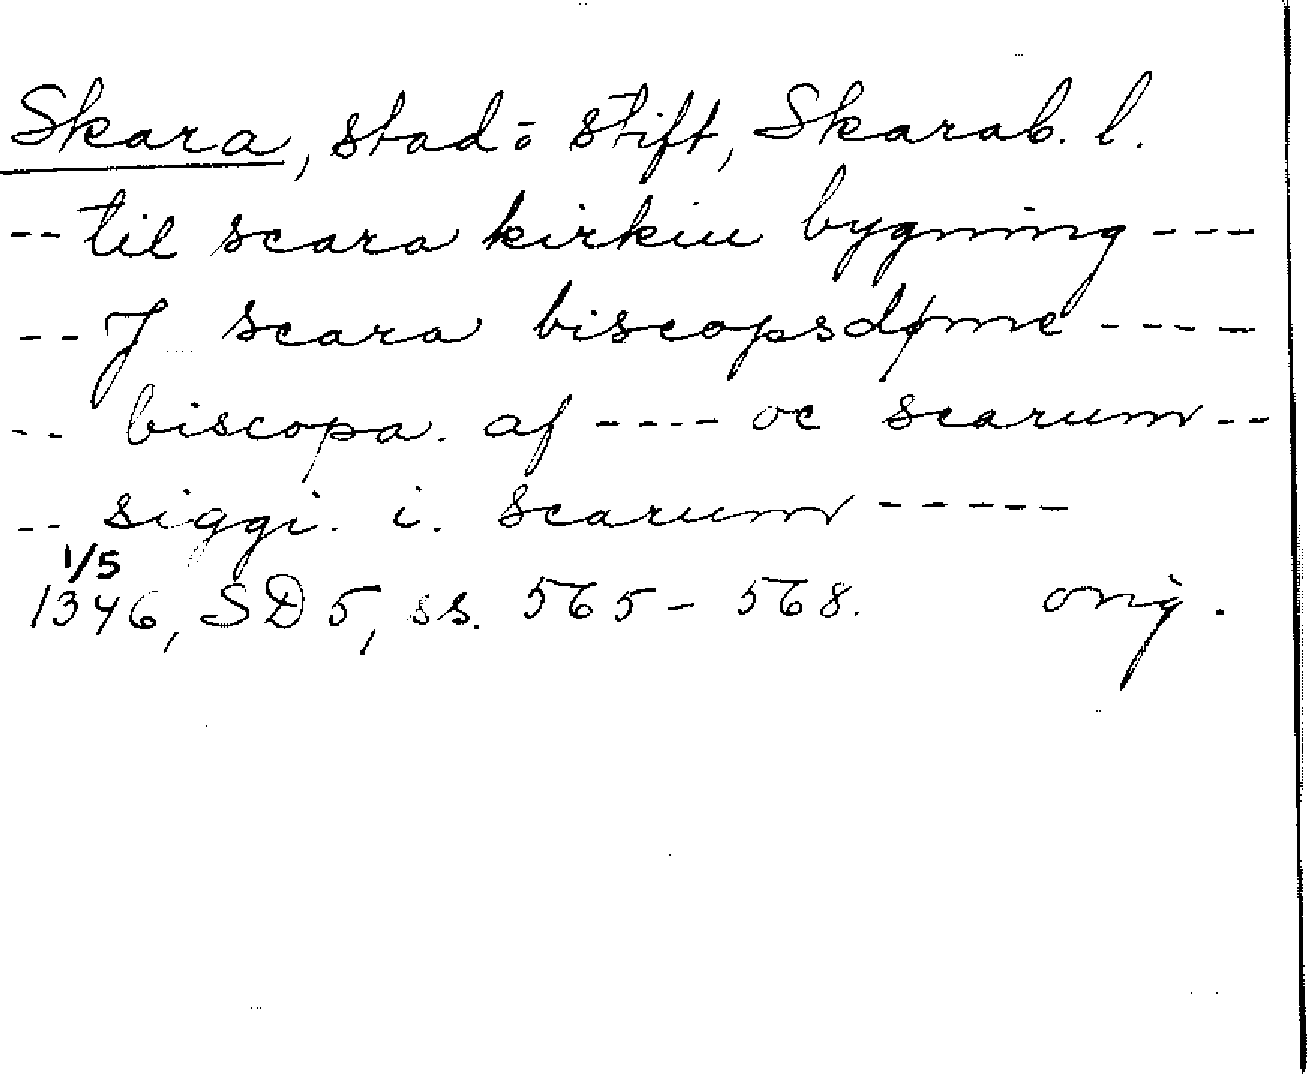 Skara, stad o stift, Skarab. l.
-- til scara kirkiu bygning ---
-- J scara biscopsdøme ----
-- biscopa. af ---- oc scarum --
-- siggi. i. scarum -----
1/5
1346, SD 5, ss. 565-568. orig.